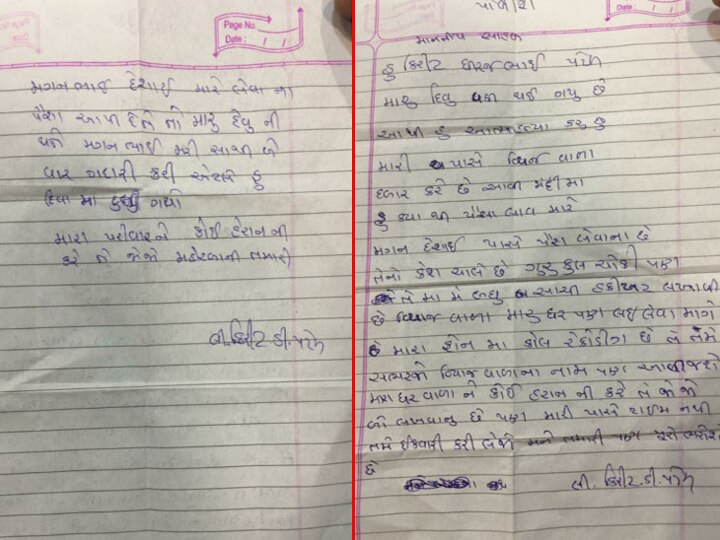 Page No.
Date : / /
મગનભાઈ દેસાઈ મારે લેવા ના
પૈસા આપી દેતે તો મારુ દેવુ ની
થતે મગન ભાઈ મરી સાથે બે
વાર ગદારી કરી એટલે હુ
દેવા મા ડુબી ગયો
મારા પરીવારને કોઈ હેરાન ની
કરે તે જોજો મહેરબાની તમારી
લી. કિરીટ. ડી. પટેલ
Date : / /
માનનીય સાહેબ
હુ કિરીટ ધીરજભાઈ પટેલ
મારુ દેવુ થઈ ગયુ છે
આથી હુ આત્મહત્યા કરુ છુ
મારી પાસે વ્યાજ વાળા
દબાણ કરે છે આવી મંદી મા
હુ ક્યા થી પૈસા લાવ મારે
મગન દેસાઈ પાસે પૈસા લેવાના છે
તેનો કેશ ચાલે છે ગુરુકુલ ચોકી પણ
તે મા મે બધુ સાચી હકીકત લખાવી
છે વ્યાજ વાળા મારુ ઘર પણ લઈ લેવા માગે
છે મારા ફોન મા કોલ રેકોડીંગ છે તે તમે
સાભરજો વ્યાજવાળાના નામ પણ આવી જશે
મારા ઘર વાળા ને કોઈ હેરાન ની કરે તે જોજો
બો લખવાનુ છે પણ મારી પાસે ટાઈમ નથી
તમે ઈંકવારી કરી લેજો મને તમારી પર ભરોશો
છે
લી. કિરીટ. ડી. પટેલ